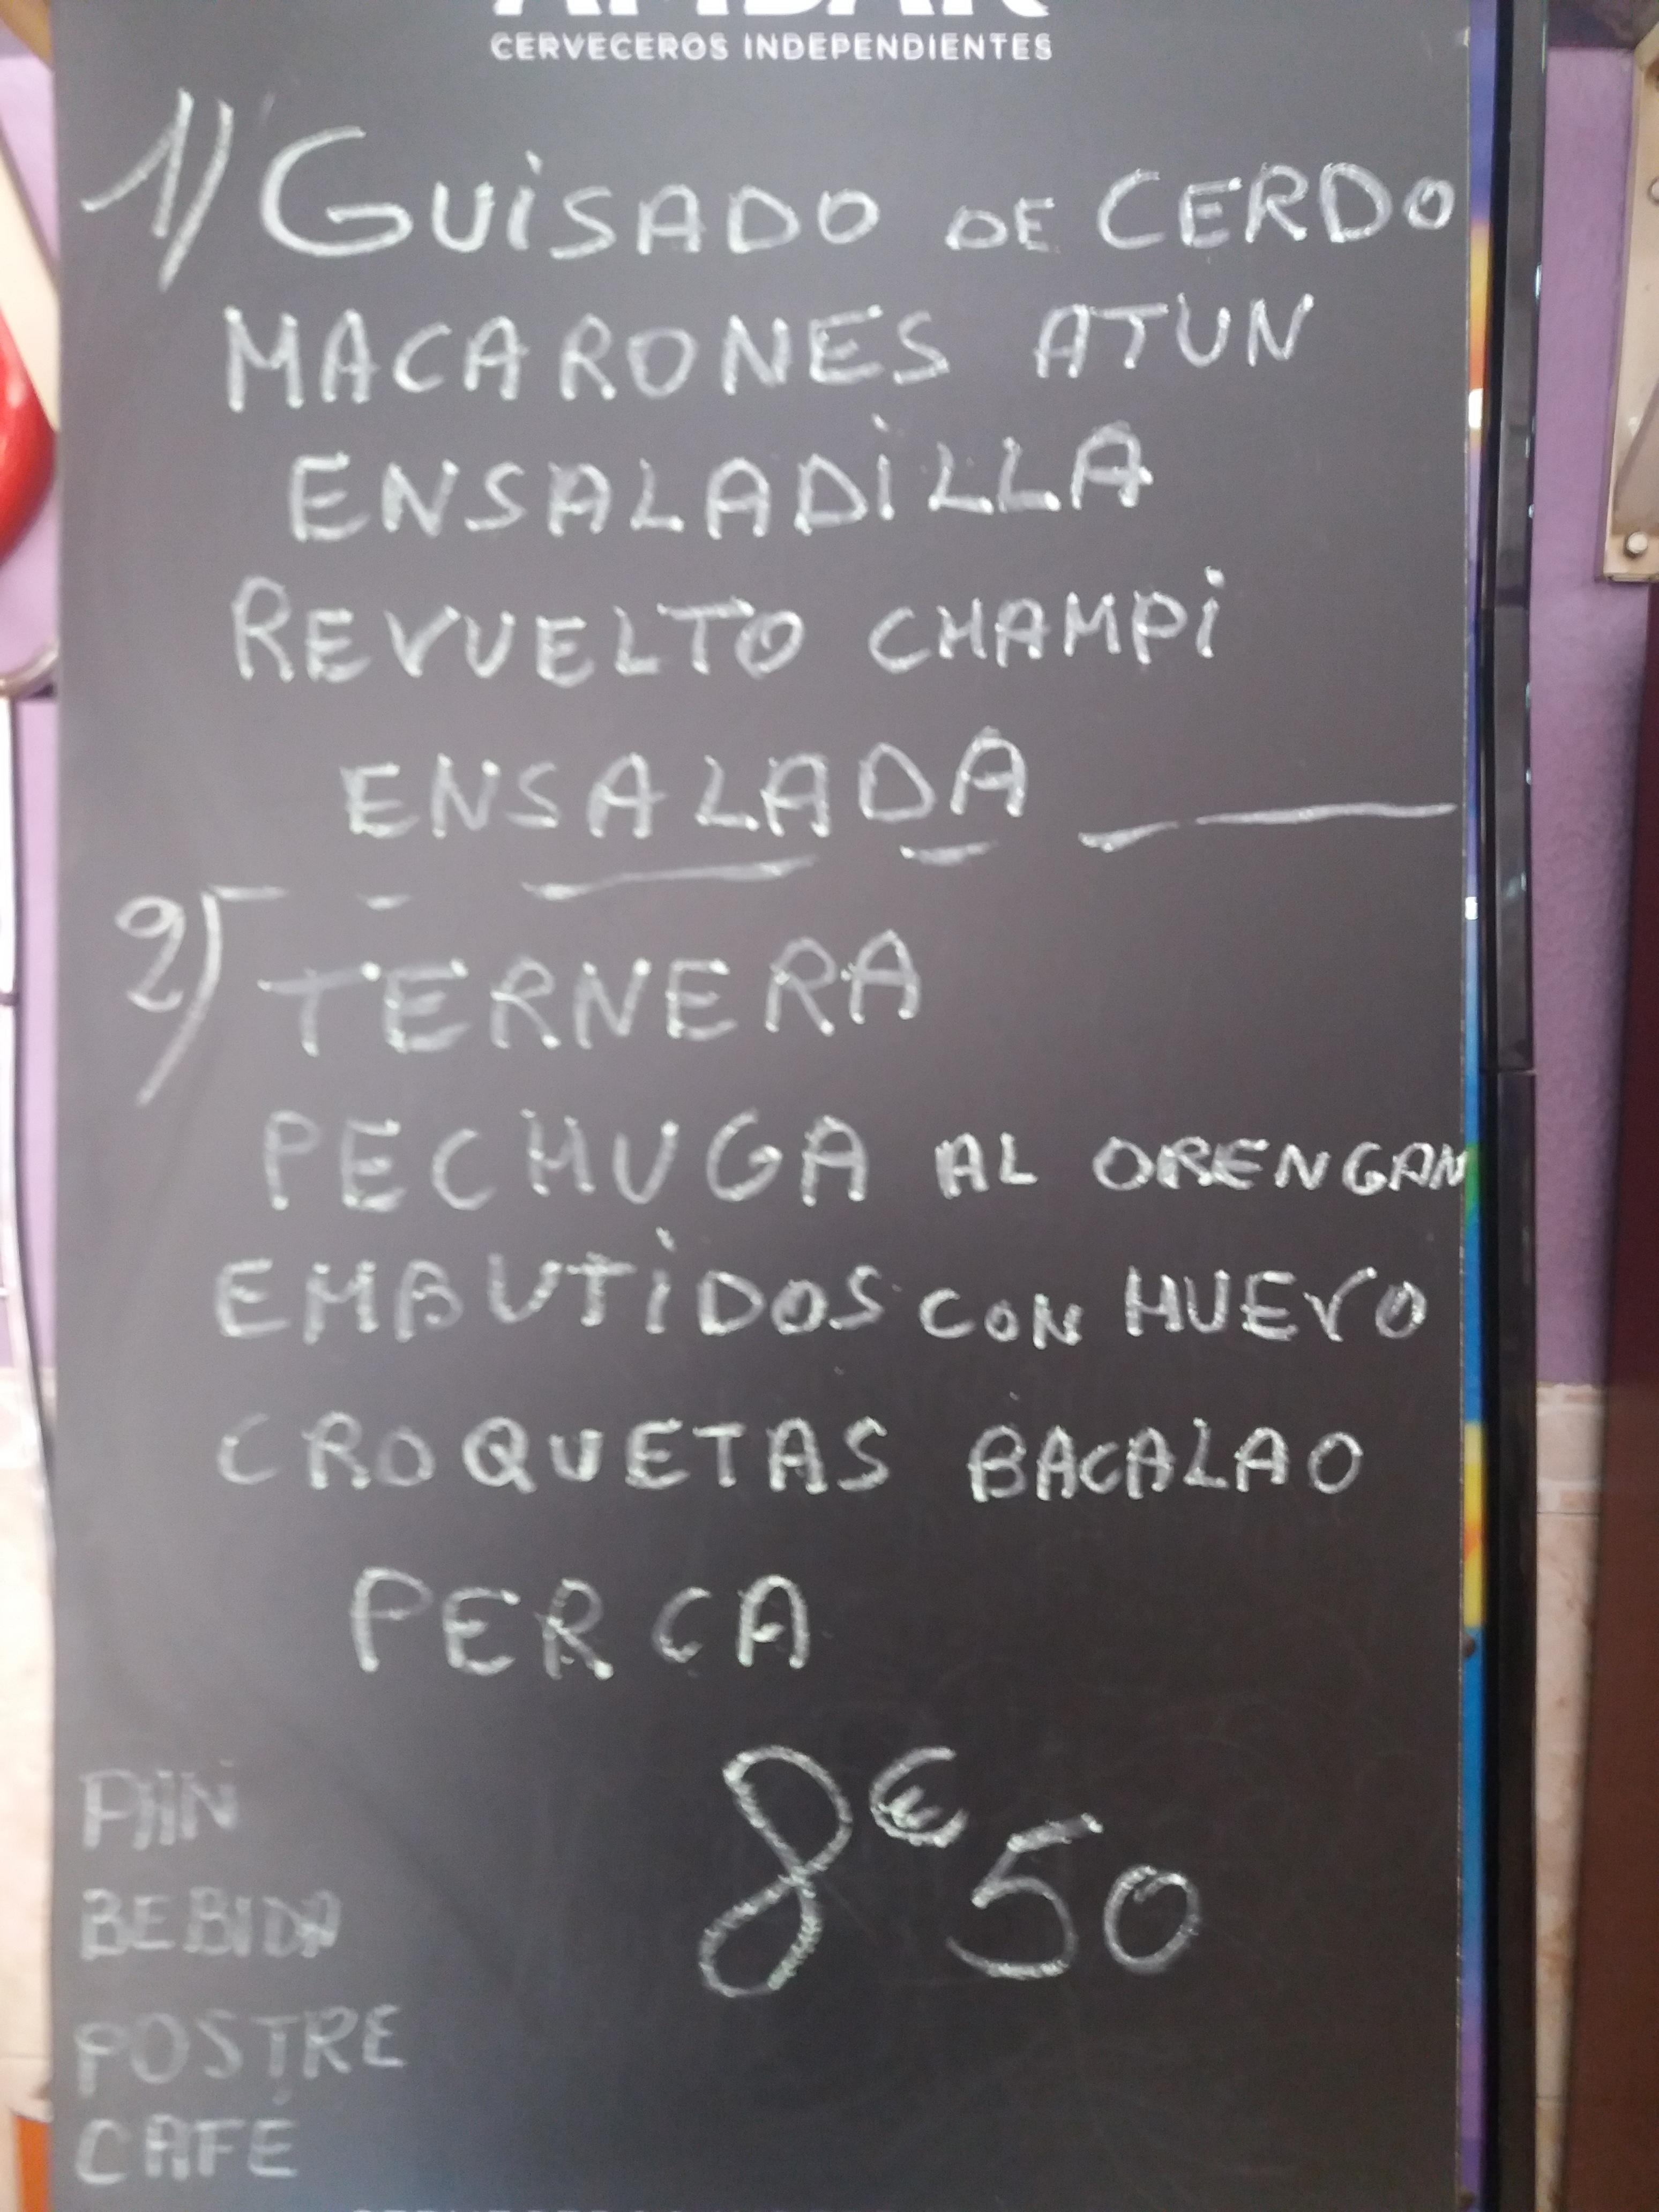 AMBAR
CERVECEROS INDEPENDIENTES
1) GUiSADO DE CERDO
MACARONES ATUN
ENSALADiLLA
REVUELTO CHAMPi
ENSALADA
2) TERNERA
PECHUGA AL ORENGAN
EMBUTiDOS CON HUEVO
CROQUETAS BACALAO
PERCA
8€50
PAN
BEBIDA
POSTRE
CAFÉ